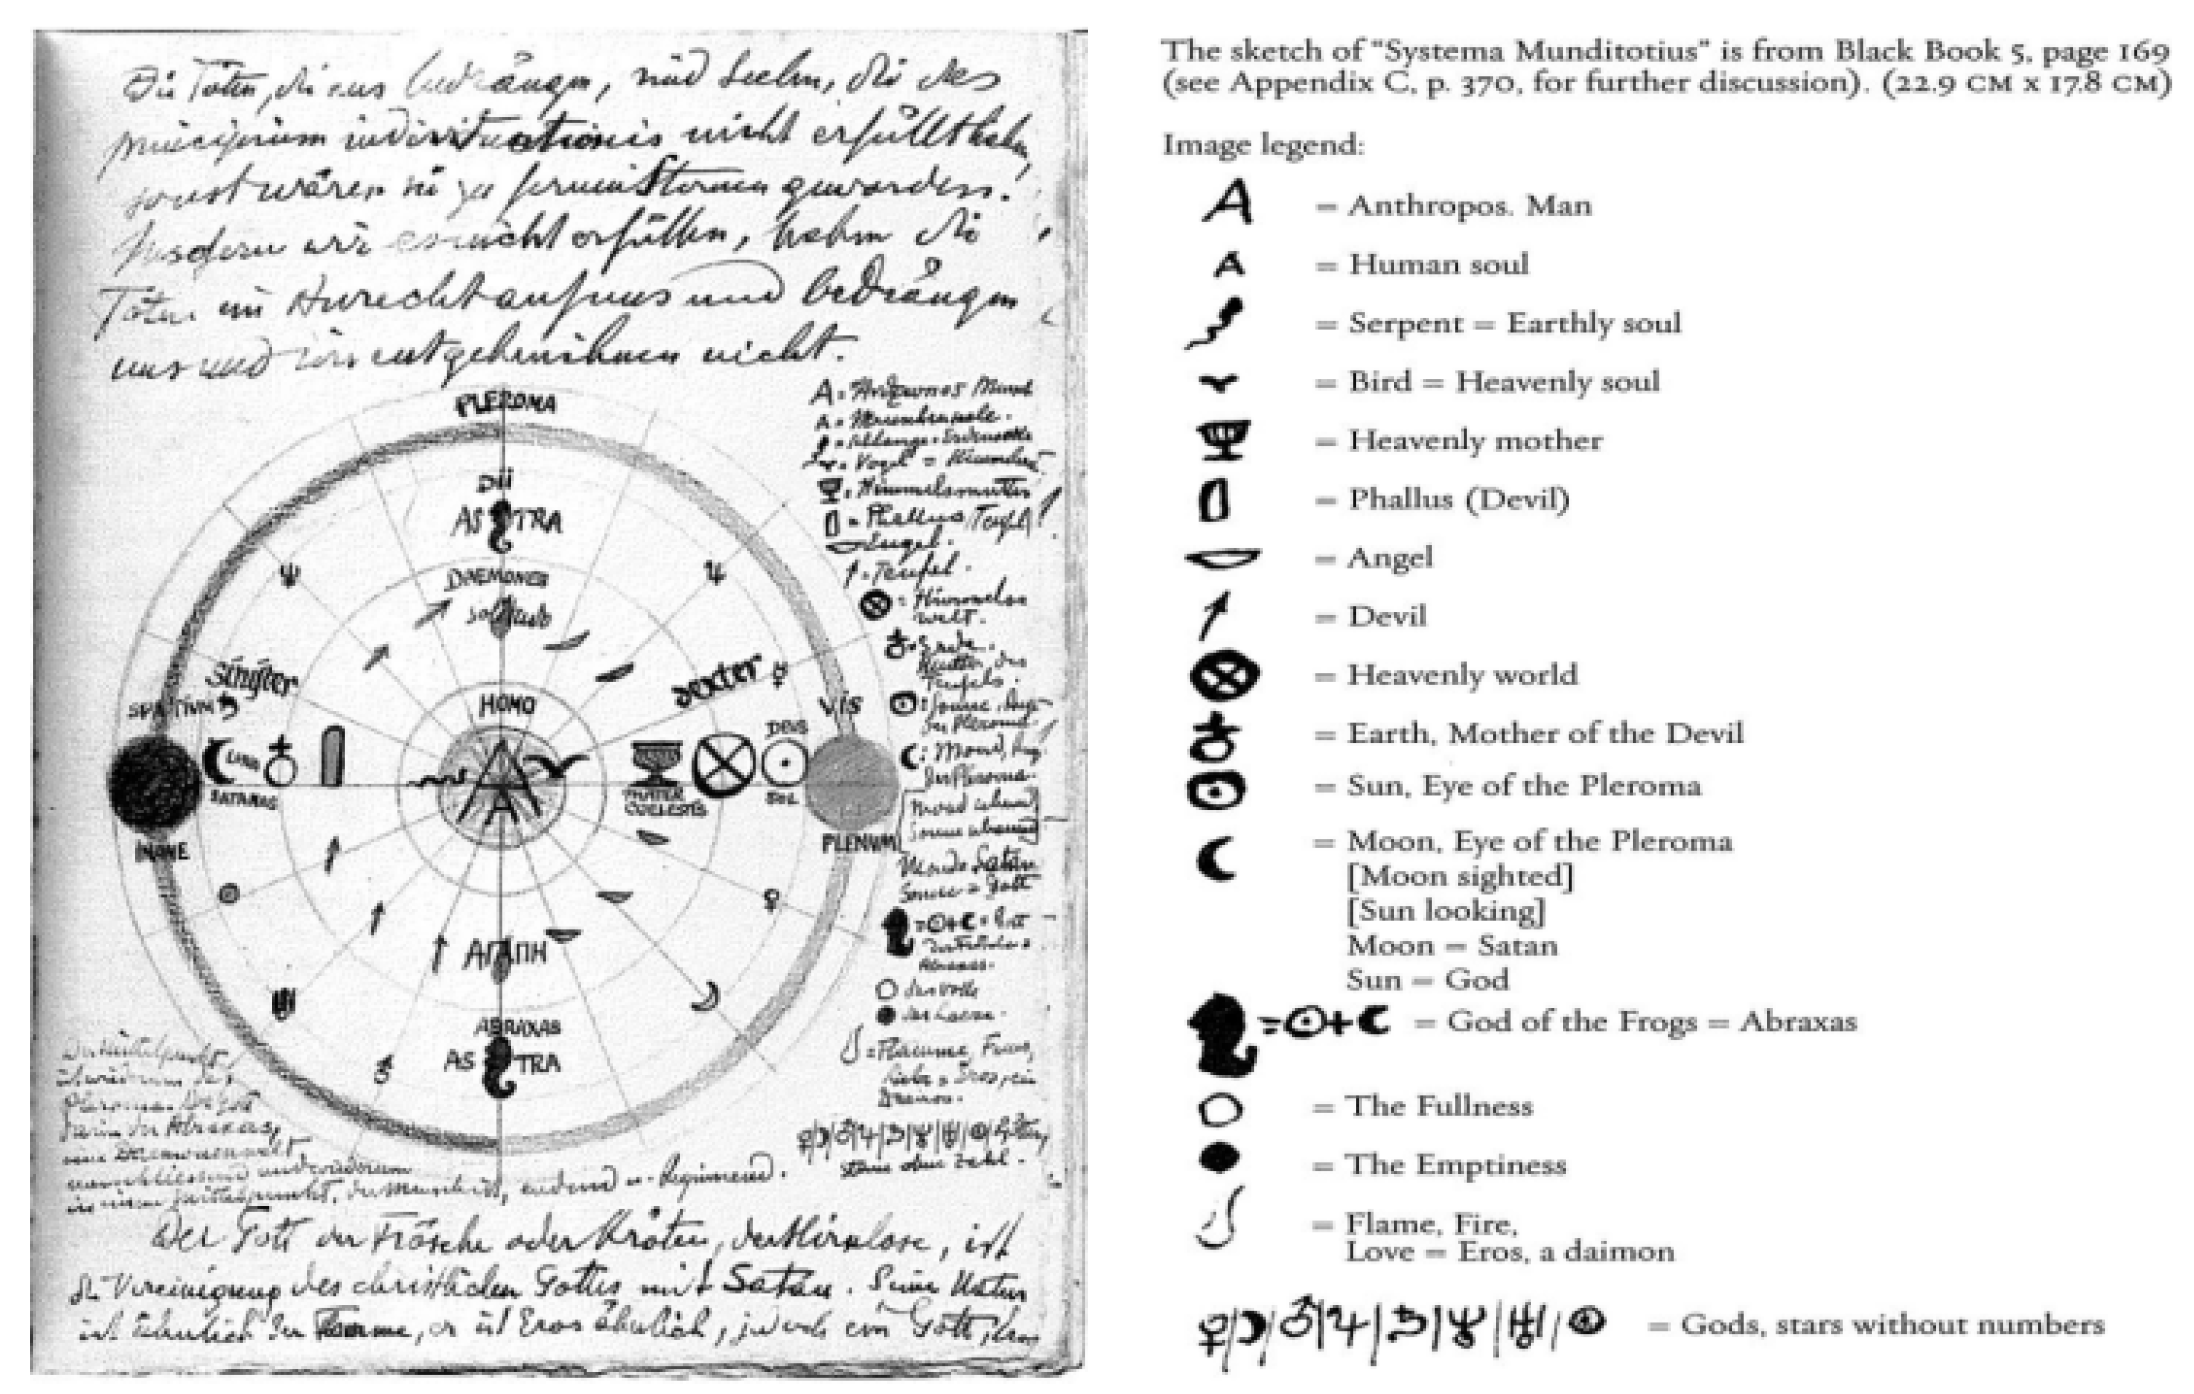 Die Toten, die uns bedrängen, sind Seelen, die das
principium individuationis nicht erfüllt haben,
sonst wären sie zu fernen Sternen geworden.
Insofern wir es nicht erfüllen, haben die
Toten ein Anrecht auf uns und bedrängen
uns und wir entgehen ihnen nicht.
PLEROMA
DII
ASTRA
DAEMONES
sinister
dexter
SPATIUM
VIS
HOMO
DEUS
LUNA
SATANAS
MATER
COELESTIS
SOL
INANE
PLENUM
ΑΓΑΠΗ
ABRAXAS
ASTRA
A = Anthropos Mensch
A = Menschenseele.
= Schlange = Erdenseele
= Vogel = Himmelss.
= Himmelsmutter
= Phallus (Teufel)
= Engel.
= Teufel.
= Himmels
welt.
= Erde.
Mutter des
Teufels.
= Sonne, Auge
des Pleroma.
= Mond, Aug
des Pleroma.
Mond = Satan
Sonne = Gott
= ☉ + ☾ = Gott
der Frösche =
Abraxas.
das Volle
das Leere.
= Flamme, Feuer,
Liebe = Eros, ein
Daemon.
♀|☽|♂|♃|♄|♆|♅| Götter,
Sterne ohne Zahl.
Der Mittelpunkt
ist wiederum das
Pleroma. Der Gott
darin der Abraxas,
eine Daemonenwelt
umschliesst und wiederum
in einem Mittelpunkt, die Menschheit, endend u. beginnend.
Der Gott der Frösche oder Kröten, der Hirnlose, ist
die Vereinigung des christlichen Gottes mit Satan. Seine Natur
ist ähnlich der Flamme, er ist Eros ähnlich, jedoch ein Gott,
The sketch of "Systema Munditotius" is from Black Book 5, page 169
(see Appendix C, p. 370, for further discussion). (22.9 CM x 17.8 CM)
Image legend:
A = Anthropos. Man
A = Human soul
= Serpent = Earthly soul
= Bird = Heavenly soul
= Heavenly mother
= Phallus (Devil)
= Angel
= Devil
= Heavenly world
= Earth, Mother of the Devil
= Sun, Eye of the Pleroma
= Moon, Eye of the Pleroma
[Moon sighted]
[Sun looking]
Moon = Satan
Sun = God
= ☉ + ☾ = God of the Frogs = Abraxas
= The Fullness
= The Emptiness
= Flame, Fire,
Love = Eros, a daimon
♀|☽|♂|♃|♄|♆|♅| = Gods, stars without numbers